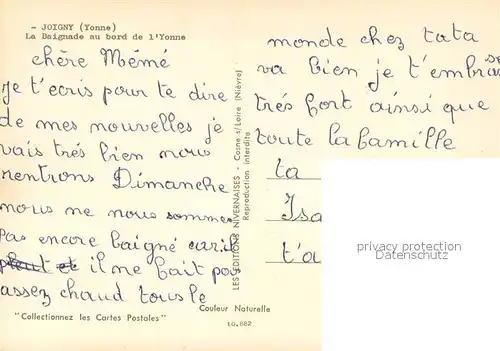 - JOIGNY (Yonne)
La Baignade au bord de l'Yonne
chère Mémé
je t'ecris pour te dire
de mes nouvelles je
vais trés bien nous
rentrons Dimanche
nous ne nous sommes
pas encore baigné car il
pleut et il ne fait pas
assez chaud tous le
monde chez tata
va bien je t'embrasse
trés fort ainsi que
toute la famille
ta
Isa
t'a
LES EDITIONS NIVERNAISES - Cosne s/Loire (Nièvre)
Reproduction interdite
Couleur Naturelle
"Collectionnez les Cartes Postales"
10.882
privacy protection
Datenschutz